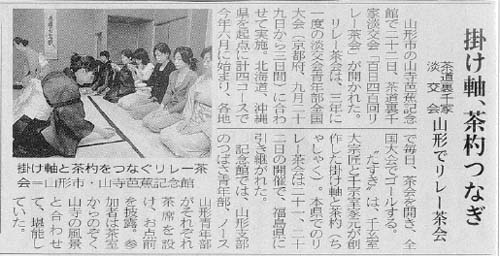 掛け軸、茶杓つなぎ
茶道裏千家
淡交会
山形でリレー茶会
山形市の山寺芭蕉記念
館で二十二日、茶道裏千
家淡交会「百日四百回リ
レー茶会」が開かれた。
リレー茶会は、三年に
一度の淡交会青年部全国
大会（京都府、九月二十
九日から三日間）に合わ
せて実施。北海道、沖縄
県を起点に計四コースで
今年六月に始まり、各地
で毎日、茶会を開き、全
国大会でゴールする。
“たすき”は、千玄室
大宗匠と千宗室家元が創
作した掛け軸と茶杓（ち
ゃしゃく）。本県でのリ
レー茶会は二十一、二十
二日の開催で、福島県に
引き継がれた。
記念館では、山形支部
のつばさ青年部、ノース
山形青年部
がそれぞれ
茶席を設
け、お点前
を披露。参
加者は茶室
からのぞく、
山寺の風景
と合わせ
て、堪能し
ていた。
掛け軸と茶杓をつなぐリレー茶
会＝山形市・山寺芭蕉記念館